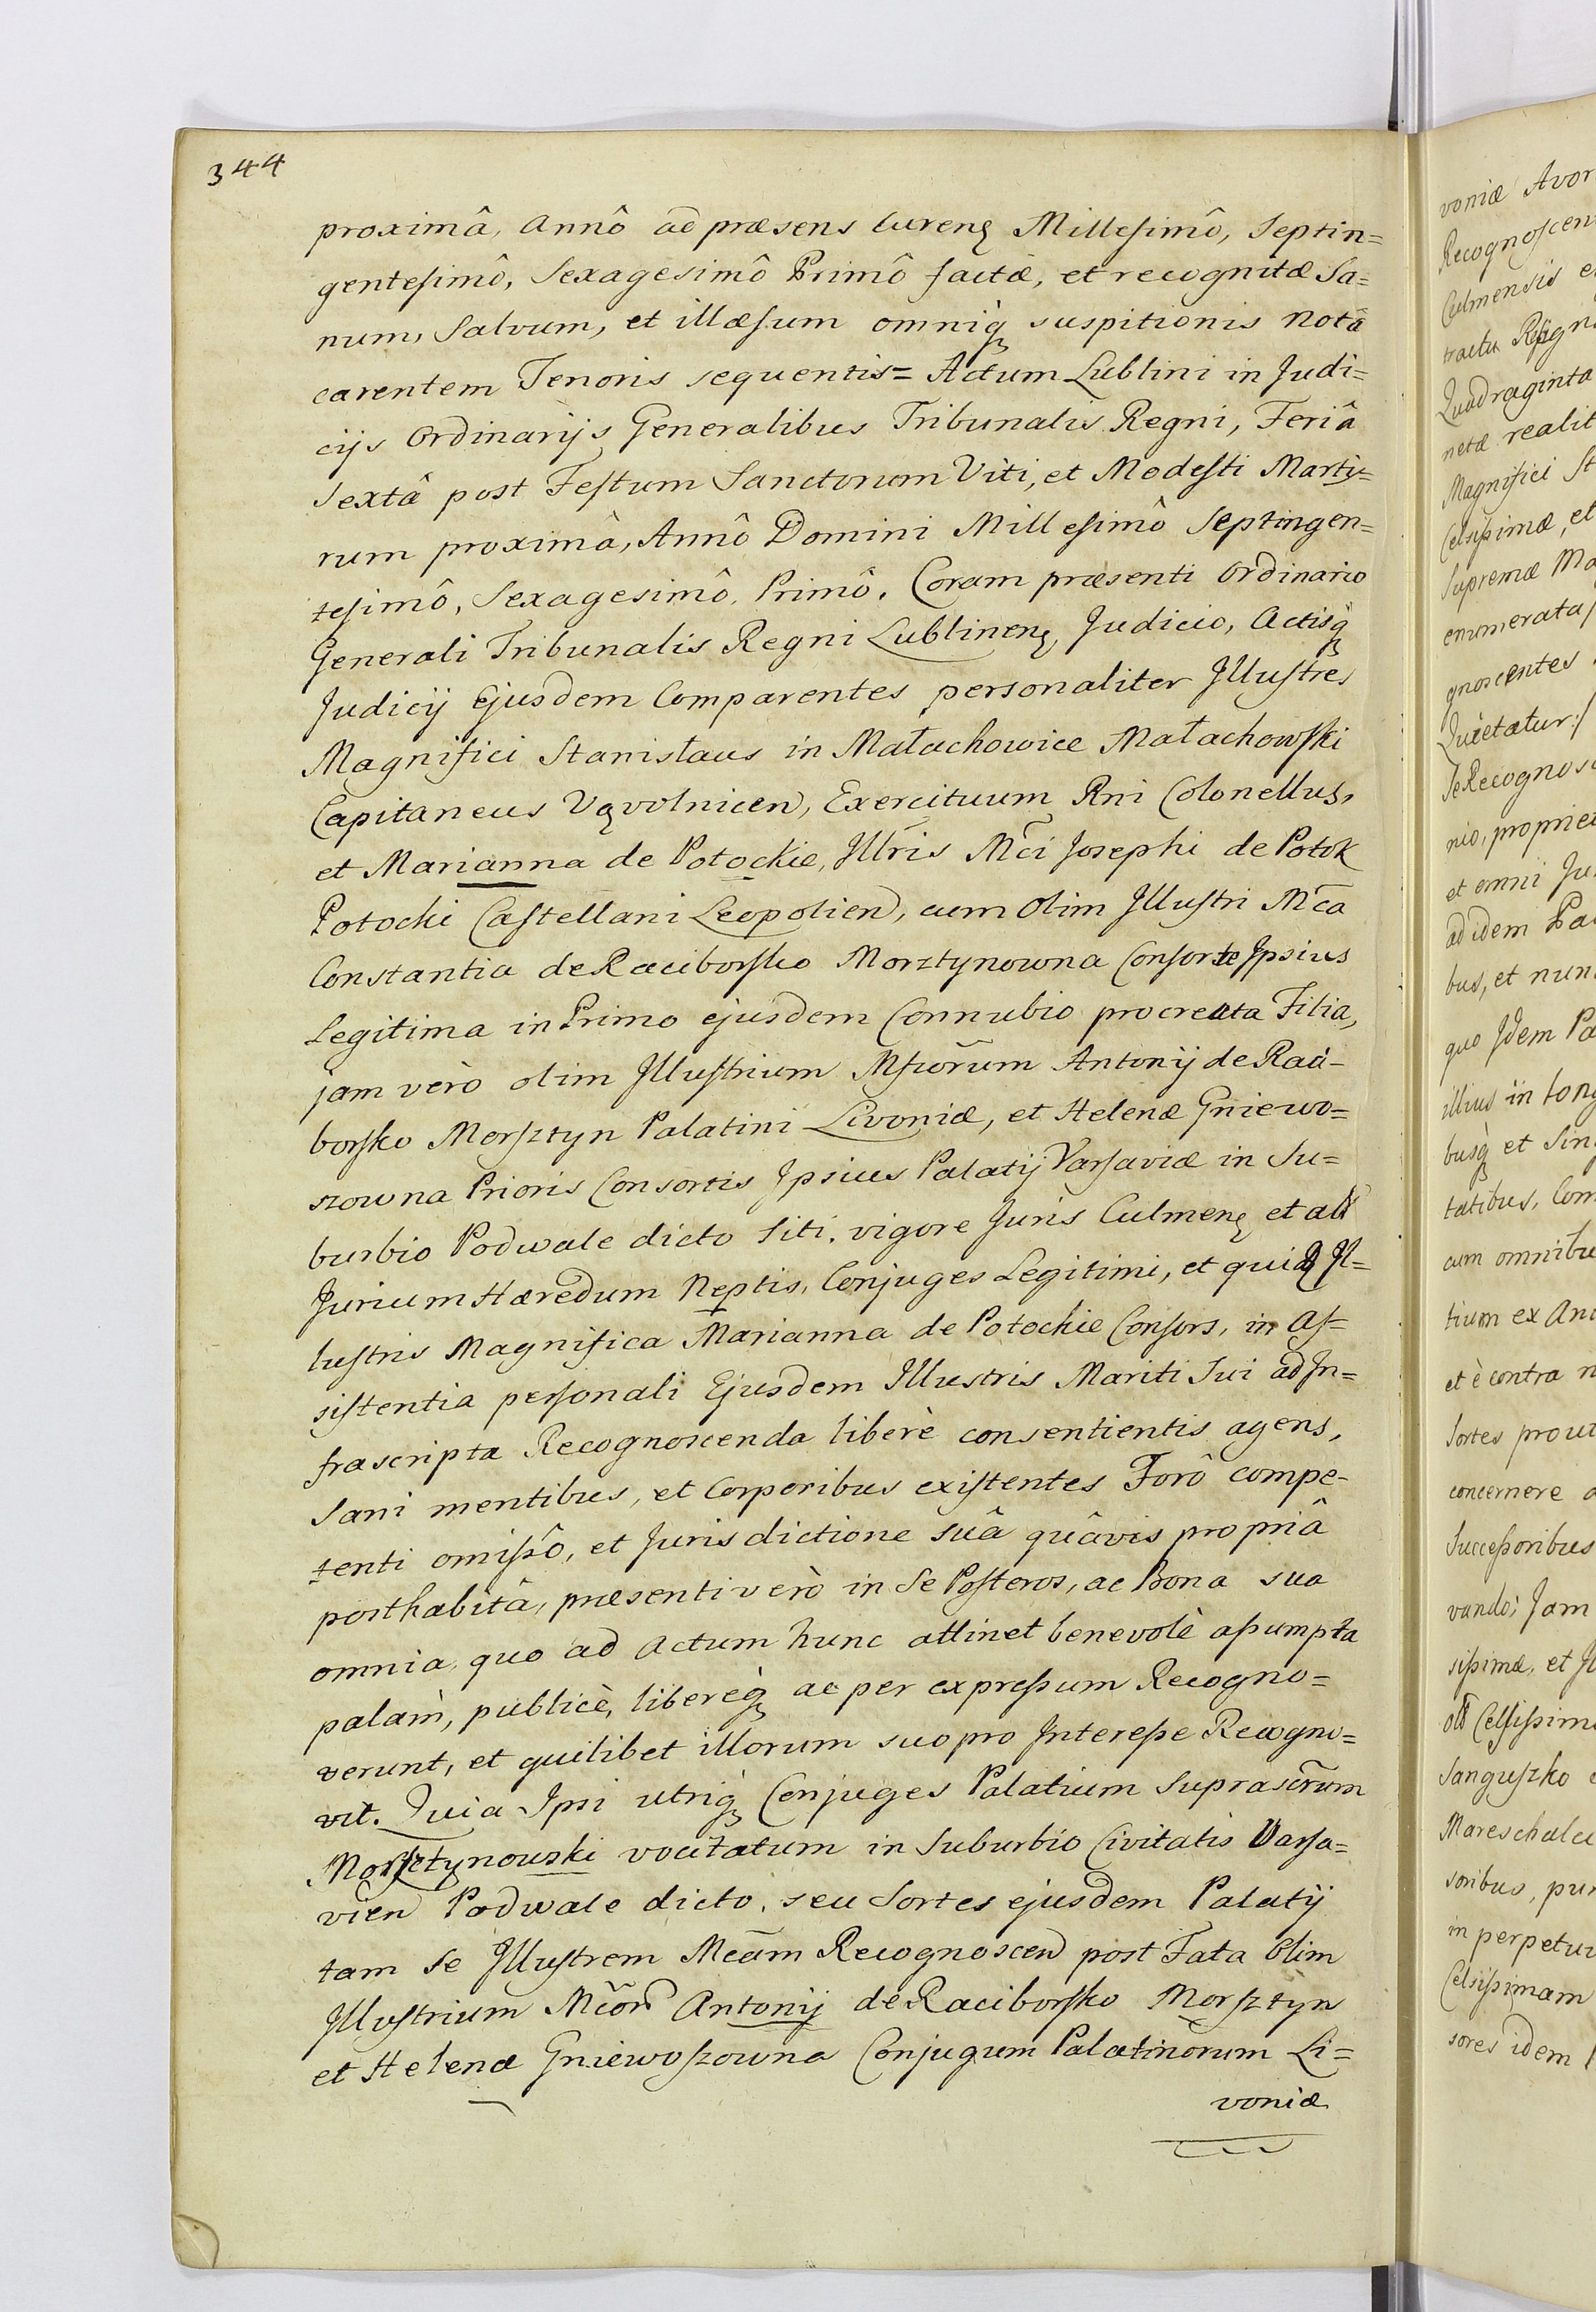 344
proximâ, Annô ad præsens Curenʒ Millesimô, Septin=
gentesimô, Sexagesimô Primô factæ, et recognitæ Sa=
num, Salvum, et illæsum omniq̀ suspitionis notâ
carentem Tenoris sequentis = Actum Lublini in Judi=
cijs Ordinarijs Generalibus Tribunalis Regni, Feriâ
Sextâ post Festum Sanctorum Viti, et Modesti Marty=
rum proximâ, Annô Domini Millesimô Septingen=
tesimô, Sexagesimô, Primô. Coram præsenti Ordinario
Generali Tribunalis Regni Lublinenʒ Judicio, Actisq̀
Judicij Ejusdem Comparentes personaliter Illustres
Magnifici Stanisłaus in Małachowice Małachowski
Capitaneus Vʒvolnicen, Exercituum Rni Colonellus,
et Marianna de Potockie, Illris Mci Josephi de Potok
Potocki Castellani Leopolien, cum Olim Illustri Mca
Constantia de Raciborsko Morztynowna Consorte Ipsius
Legitima in Primo ejusdem Connubio procreata Filia,
jam verò olim Illustrium Mficorum Antonij de Raci-
borsko Morsztyn Palatini Livoniæ, et Helenæ Gniewo=
szowna Prioris Consortis Ipsius Palatij Varsaviæ in Su=
burbio Podwale dicto siti, vigore Juris Culmenʒ et ali
Jurium Hæredum Neptis, Conjuges Legitimi, et quidʒ Il=
lustris Magnifica Marianna de Potockie Consors, in As=
sistentia personali Ejusdem Illustris Mariti Sui ad In=
frascripta Recognoscenda liberè consentientis agens,
Sani mentibus, et Corporibus existentes Forô compe-
tenti omissô, et Jurisdictione suâ quâvis propriâ
posthabitâ, præsenti verò in Se Posteros, ac Bona sua
omnia, quo ad Actum hunc attinet benevolè assumpta
palàm, publicè, libereq̀ ac per expressum Recogno=
verunt, et quilibet illorum suo pro Interesse Recogno=
vit. Quia Ipsi utriq̀ Conjuges Palatium Suprascrum
Morsztynowski vocitatum in Suburbio Civitatis Varsa=
vien Podwale dicto, seu Sortes ejusdem Palatij
tam Se Illustrem Mcam Recognoscen post Fata Olim
Illustrium Mcor Antonij de Raciborsko Morsztyn
et Helena Gniewoszowna Conjugum Palatinorum Li=
voniæ
voniæ Avor
Recognoscen
Culmensis e
tractu Resign
Quadraginta
netæ realit
Magnifici St
Celsissimæ, et
Supremæ Ma
enumerata
gnoscentes
Quietatur:/
Se Recognosc
nio, propriet
et omni Ju
ad idem Pa
bus, et nun
quo Idem Pa
illius in long
busq̀ et Sin
tatibus, Com
cum omnibu
tium ex An
et è contra n
Sortes prout
concernere
Successoribus
vando; Jam
sissimæ, et Il
oli Celsissim
Sanguszko
Mareschalci
soribus, pur
in perpetuu
Celsissimam
sores idem